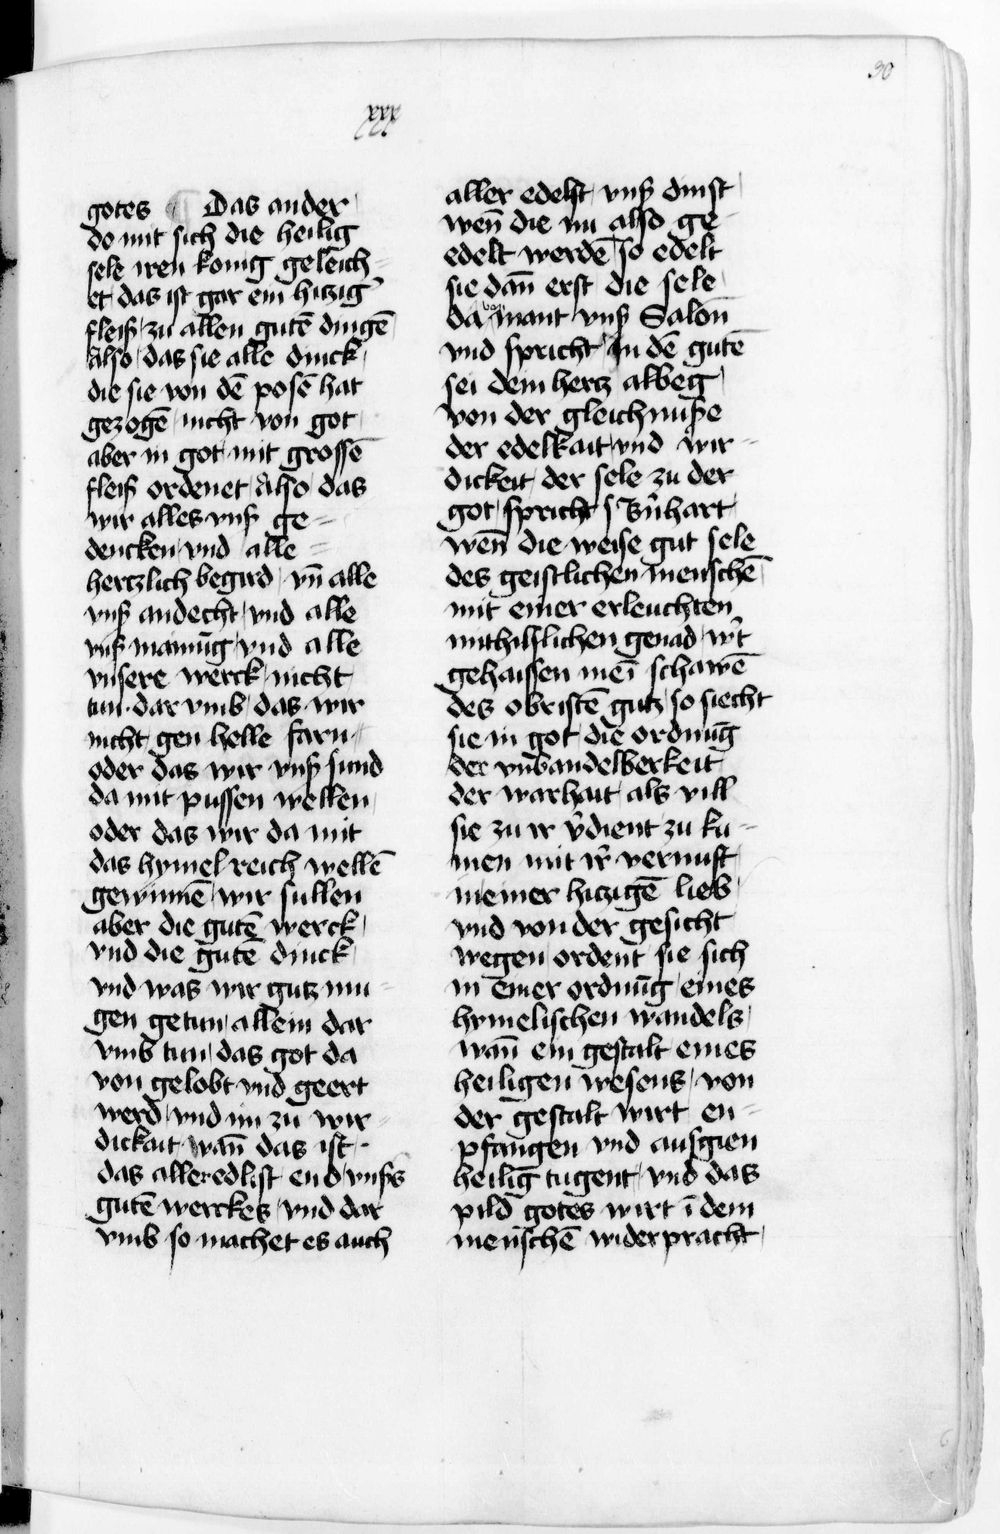 30
xxx
gotes ¶ Das ander
do mit sich die heilig
sele iren konig geleich-
et das ist gar ein hiczig
fleiß zu allen gutē dingē
Also das sie alle dinck
die sie von dē posē hat
gezogē nicht von got
aber in got mit grossē
fleiß ordenet Also das
wir alles vnß ge=
dencken vnd alle =
hertzlich begird vn̄ alle
vnß andecht vnd alle
vnß mainūg vnd alle
vnsere werck nicht
tun dar vmb das wir
nicht gen helle farn
oder das wir vnß sund
da mit pussen wellen
oder das wir da mit
das hymel reich wellē
gewinnē wir sullen
aber die gutē werck
vnd die gutē dinck
vnd was wir gutz mu-
gen getun allein dar
vmb tun das got da
von gelobt vnd geert
werd vnd im zu wir-
dickait wan̄ das ist
das alleredlist end vnßs
gutē werckes vnd dar
vmb so machet es auch
aller edelst vnß dinst
wen̄ die nu also ge-
edelt werdē so edelt
sie dan̄ erst die sele
da mant vnß Salon̄
vnd spricht In dē gutē
sei dein hertz albeg
von der gleichnuße
der edelkait vnd wir=
dickeit der sele zu der
got spricht s Bn̄hart
wen̄ die weise gut sele
des geistlichen menschē
mit einer erleuchten
mithilflichen genad wt̄
gehaissen mei schawē
des obristē gutz so siecht
sie in got die ordnūg
der vnbandelberkeit
der warhait als vill
sie zu ir v̄dient zu ku=
men mit ir̄ vernuft
in einer hiczigē lieb
vnd von der gesicht
wegen ordent sie sich
in einer ordnūg eines
hymelischen wandels
wan̄ ein gestalt eines
heiligen wesens von
der gestalt wirt en=
pfangen vnd ausgien
heilig tugent vnd das
pild gotes wirt ī dem
menschē widerpracht